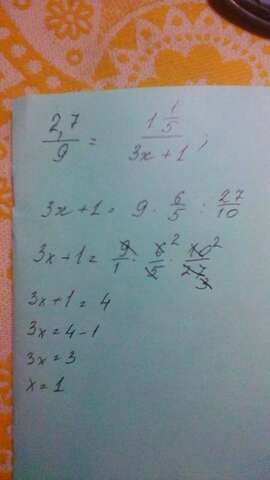 2,7/9 = 1 1/5 / 3x+1 ;
3x+1 = 9 · 6/5 : 27/10
3x+1 = 9/1 · 6/5 2 · 10/27 2 3
3x+1 = 4
3x = 4-1
3x = 3
x = 1